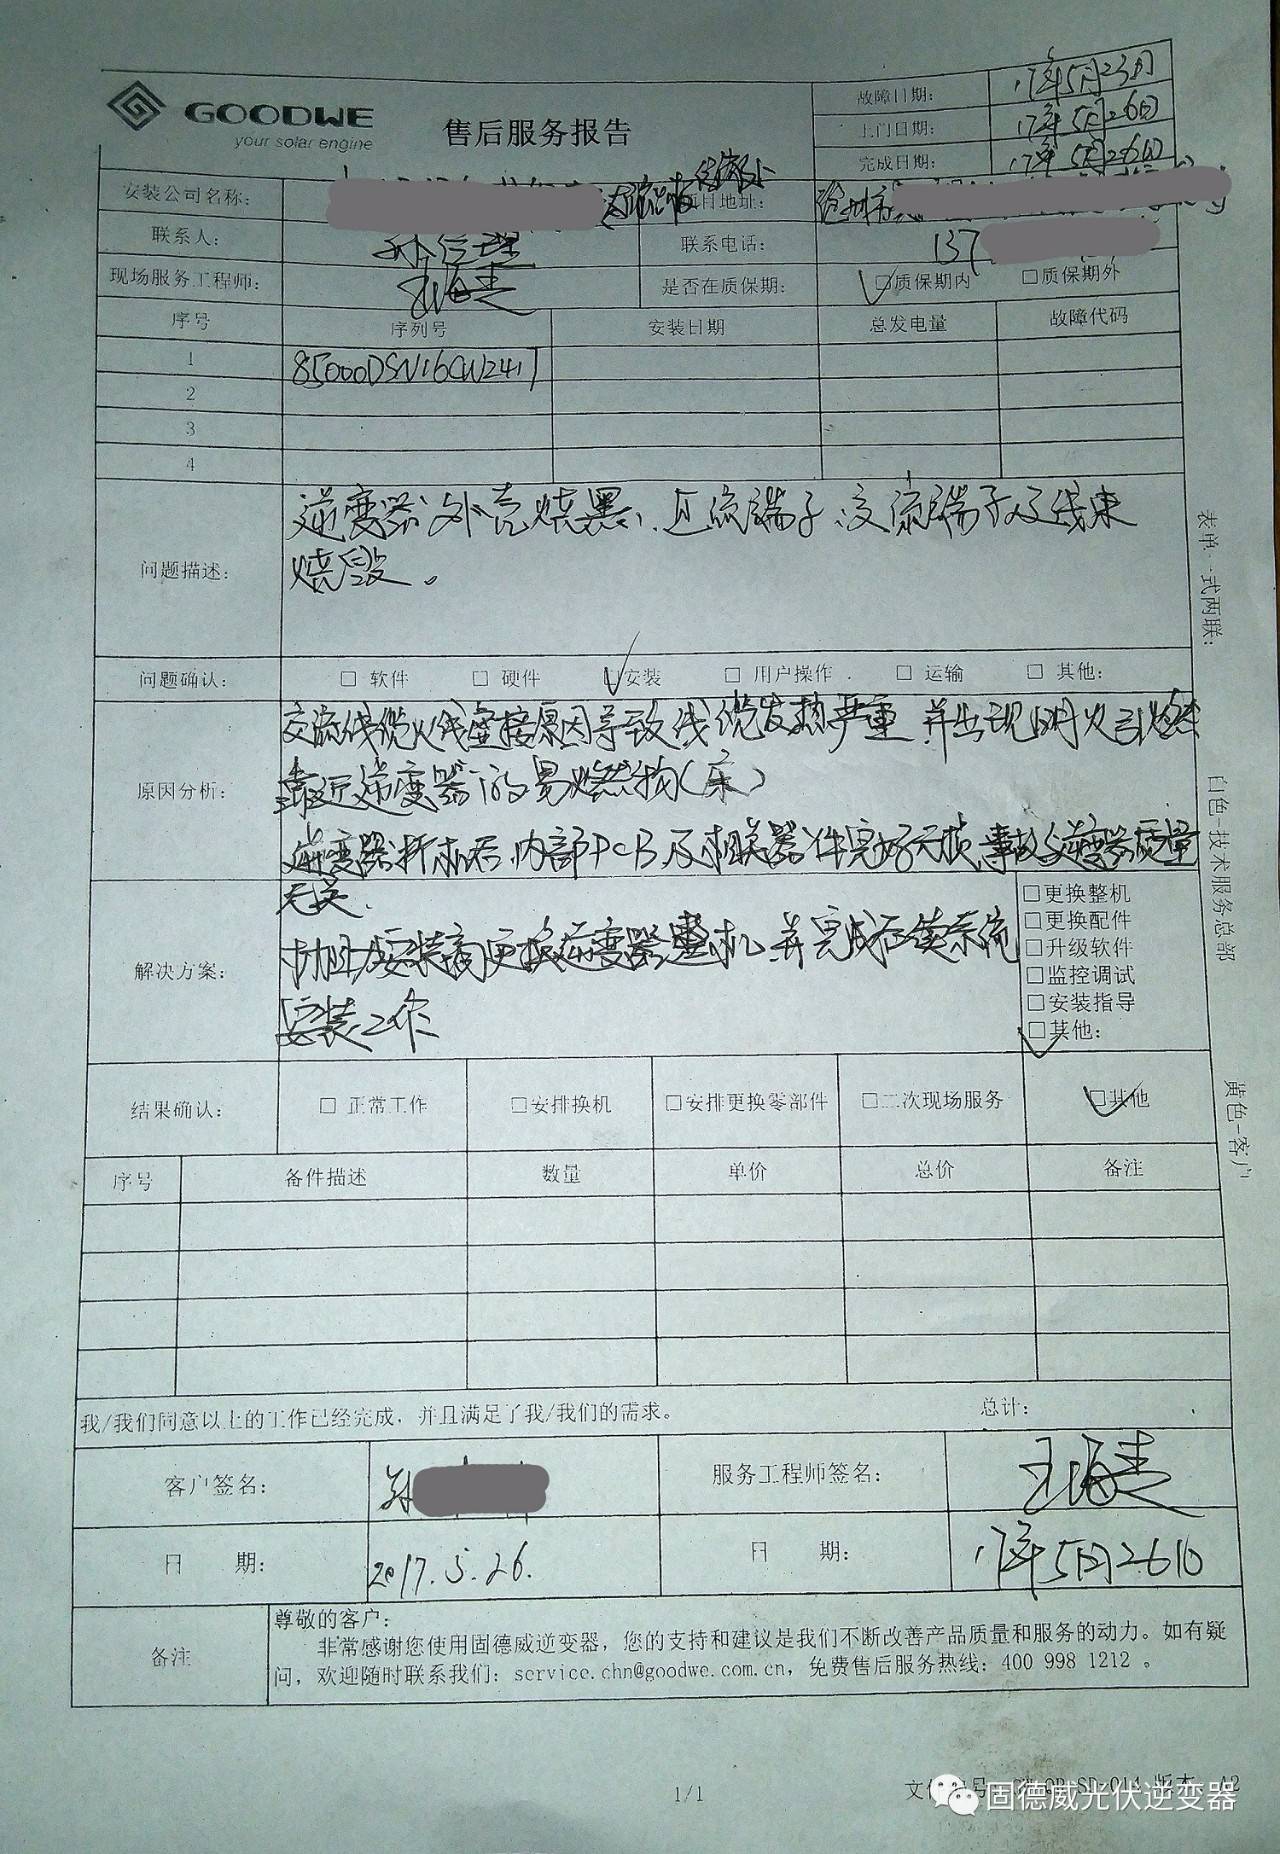 GOODWE
your solar engine
售后服务报告
故障日期: 17年5月23日
上门日期: 17年5月26日
完成日期: 17年5月26日
安装公司名称: 项目地址: 沧州市
联系人: 孙经理 联系电话: 137
现场服务工程师: 王海圭 是否在质保期: □质保期内 □质保期外
序号 序列号 安装日期 总发电量 故障代码
1 85000DSN16CW2417
2
3
4
问题描述: 逆变器外壳烧黑、直流端子、交流端子及线束
烧毁。
问题确认: □ 软件 □ 硬件 □安装 □ 用户操作 □ 运输 □ 其他:
原因分析: 交流线缆火线虚接原因导致线缆发热严重 并出现明火引燃
靠近逆变器的易燃物(床)
逆变器拆机后,内部PCB及相关器件完好无损,事故与逆变器质量
无关.
解决方案: 协助安装商更换逆变器整机,并完成后续系统
安装工作
□更换整机
□更换配件
□升级软件
□监控调试
□安装指导
□其他:
结果确认: □ 正常工作 □安排换机 □安排更换零部件 □二次现场服务 □其他
序号 备件描述 数量 单价 总价 备注
我/我们同意以上的工作已经完成，并且满足了我/我们的需求。 总计:
客户签名: 孙 服务工程师签名: 王海圭
日 期: 2017.5.26. 日 期: 17年5月26日
备注 尊敬的客户:
非常感谢您使用固德威逆变器，您的支持和建议是我们不断改善产品质量和服务的动力。如有疑
问，欢迎随时联系我们: service.chn@goodwe.com.cn，免费售后服务热线: 400 998 1212 。
表单一式两联:
白色-技术服务总部
黄色-客户
1/1
版本 A2
固德威光伏逆变器